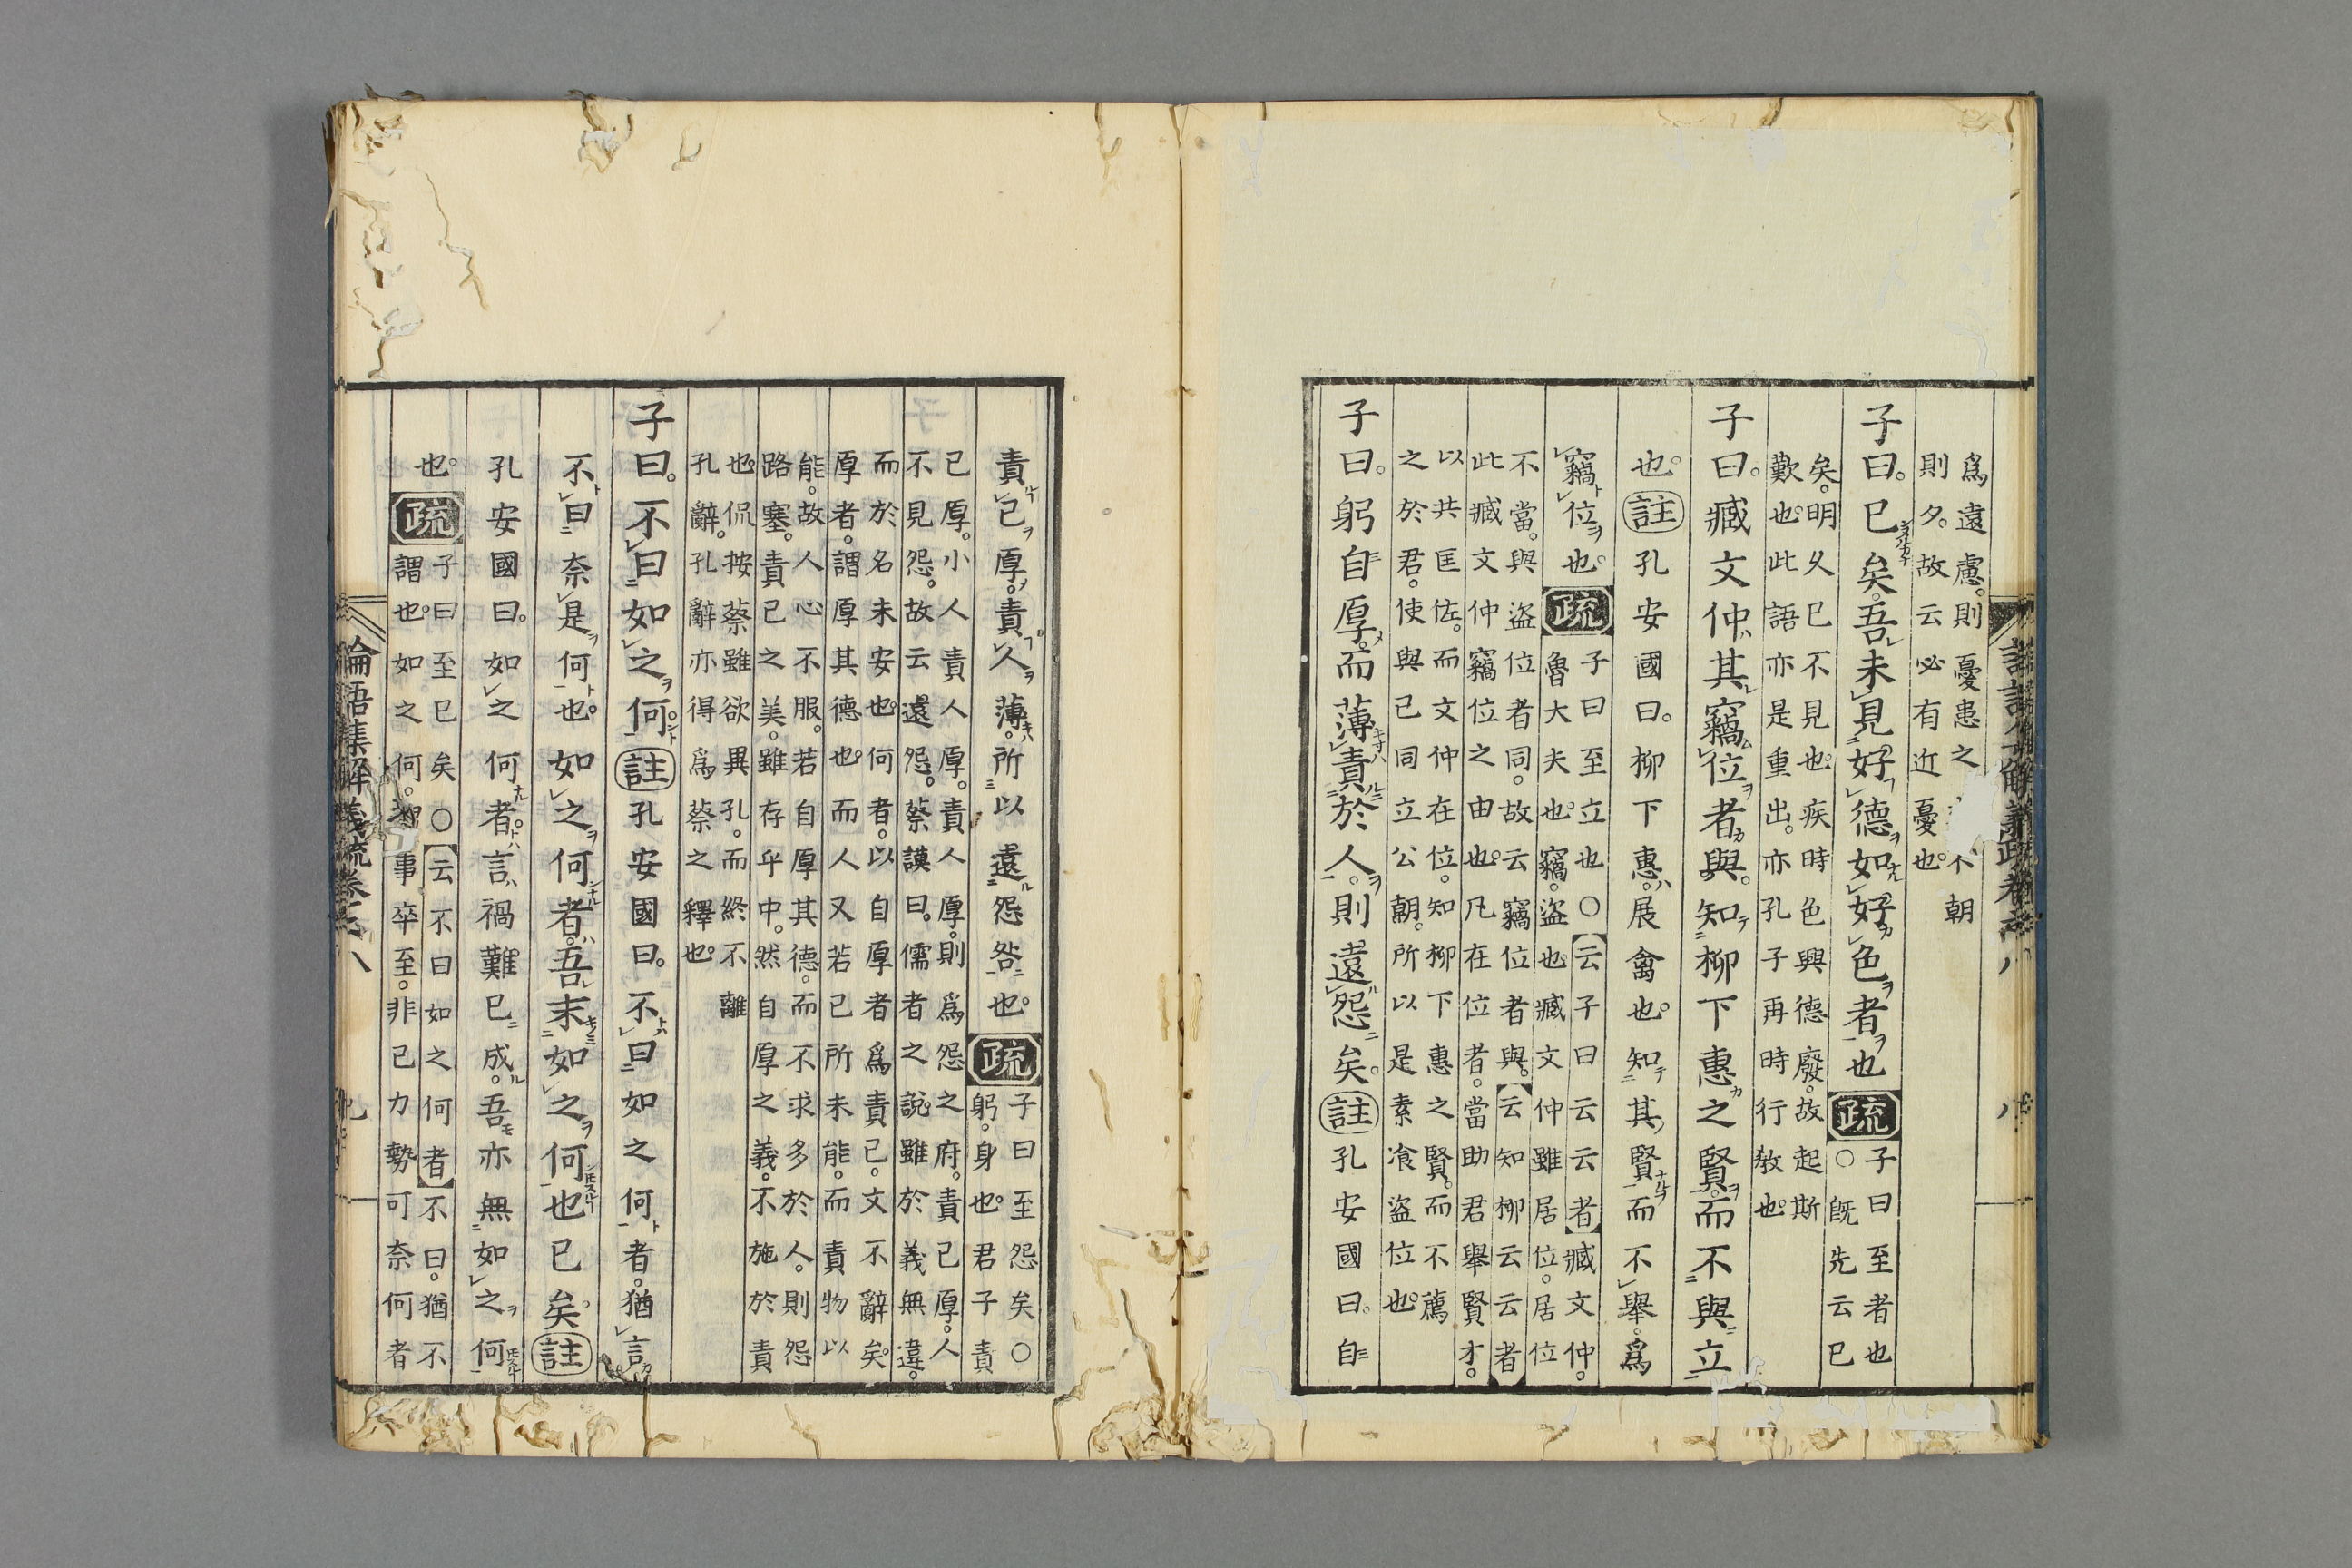 爲遠慮。則憂患之不朝
則夕。故云必有近憂也。
子曰。已矣。吾未見好德如好色者也疏子曰至者也
○既先云已
矣。明久已不見也。疾時色興德廢。故起斯
歎也。此語亦是重出。亦孔子再時行教也。
子曰。臧文仲其竊位者與。知柳下惠之賢。而不與立
也。註孔安國曰。柳下惠。展禽也。知其賢而不舉。爲
竊位也。疏子曰至立也○云子曰云云者臧文仲。
魯大夫也。竊。盜也。臧文仲雖居位。居位
不當。與盜位者同。故云竊位者與。云知柳云云者
此臧文仲竊位之由也。凡在位者。當助君舉賢才。
以共匡佐。而文仲在位。知柳下惠之賢。而不薦
之於君。使與己同立公朝。所以是素飡盜位也。
子曰。躬自厚。而薄責於人。則遠怨矣。註孔安國曰。自
責己厚。責人薄。所以遠怨咎也。疏子曰至怨矣○
躬。身也。君子責
己厚。小人責人厚。責人厚。則爲怨之府。責己厚。人
不見怨。故云遠怨。蔡謨曰。儒者之說。雖於義無違。
而於名未安也。何者。以自厚者爲責己。文不辭矣。
厚者。謂厚其德也。而人又若己所未能。而責物以
能。故人心不服。若自厚其德。而不求多於人。則怨
路塞。責己之美。雖存乎中。然自厚之義。不施於責
也。侃按蔡雖欲異孔。而終不離
孔辭。孔辭亦得爲蔡之釋也。
子曰。不曰如之何註孔安國曰。不曰如之何者。猶言
不曰奈是何也。如之何者。吾末如之何也已矣。註
孔安國曰。如之何者。言禍難已成。吾亦無如之何
也。疏子曰至已矣○云不曰如之何者不曰。猶不
謂也。如之何。謂事卒至。非己力勢可奈何者
論語集解義疏卷之八